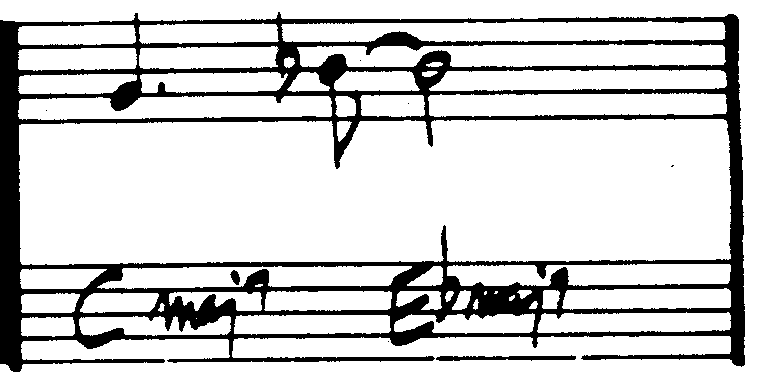 Cmaj7 E♭maj7